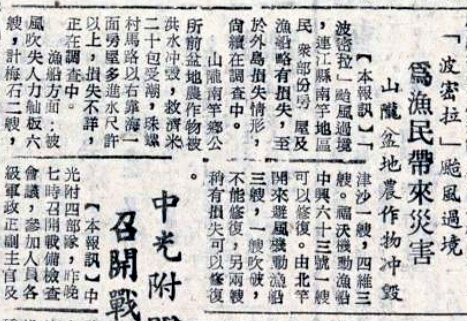 「波密拉」颱風過境
爲漁民帶來災害
山隴盆地農作物冲毀
【本報訊】「
波密拉」颱風過境
，連江縣南竿地區
民衆部份房屋及
漁船略有損失，至
於外島損失情形，
尚續在調查中。
山隴南竿鄉公
所前盆地農作物被
洪水冲毀，救濟米
二十包受潮，珠螺
村馬路以右靠海一
面房屋多進水尺許
以上，損失不詳，
正在調查中。
漁船方面：被
風吹失人力舢板六
艘，計梅石二艘，
津沙一艘，四維三
艘。福沃機動漁船
中興六十三號一艘
可以修復。由北竿
開來避風機動漁船
三艘，一艘吹破，
不能修復，另兩艘
稍有損失可以修復
。
中光附
召開戰
【本報訊】中
光附四部隊，昨晚
七時召開戰備檢查
會議，參加人員各
級軍政正副主官及